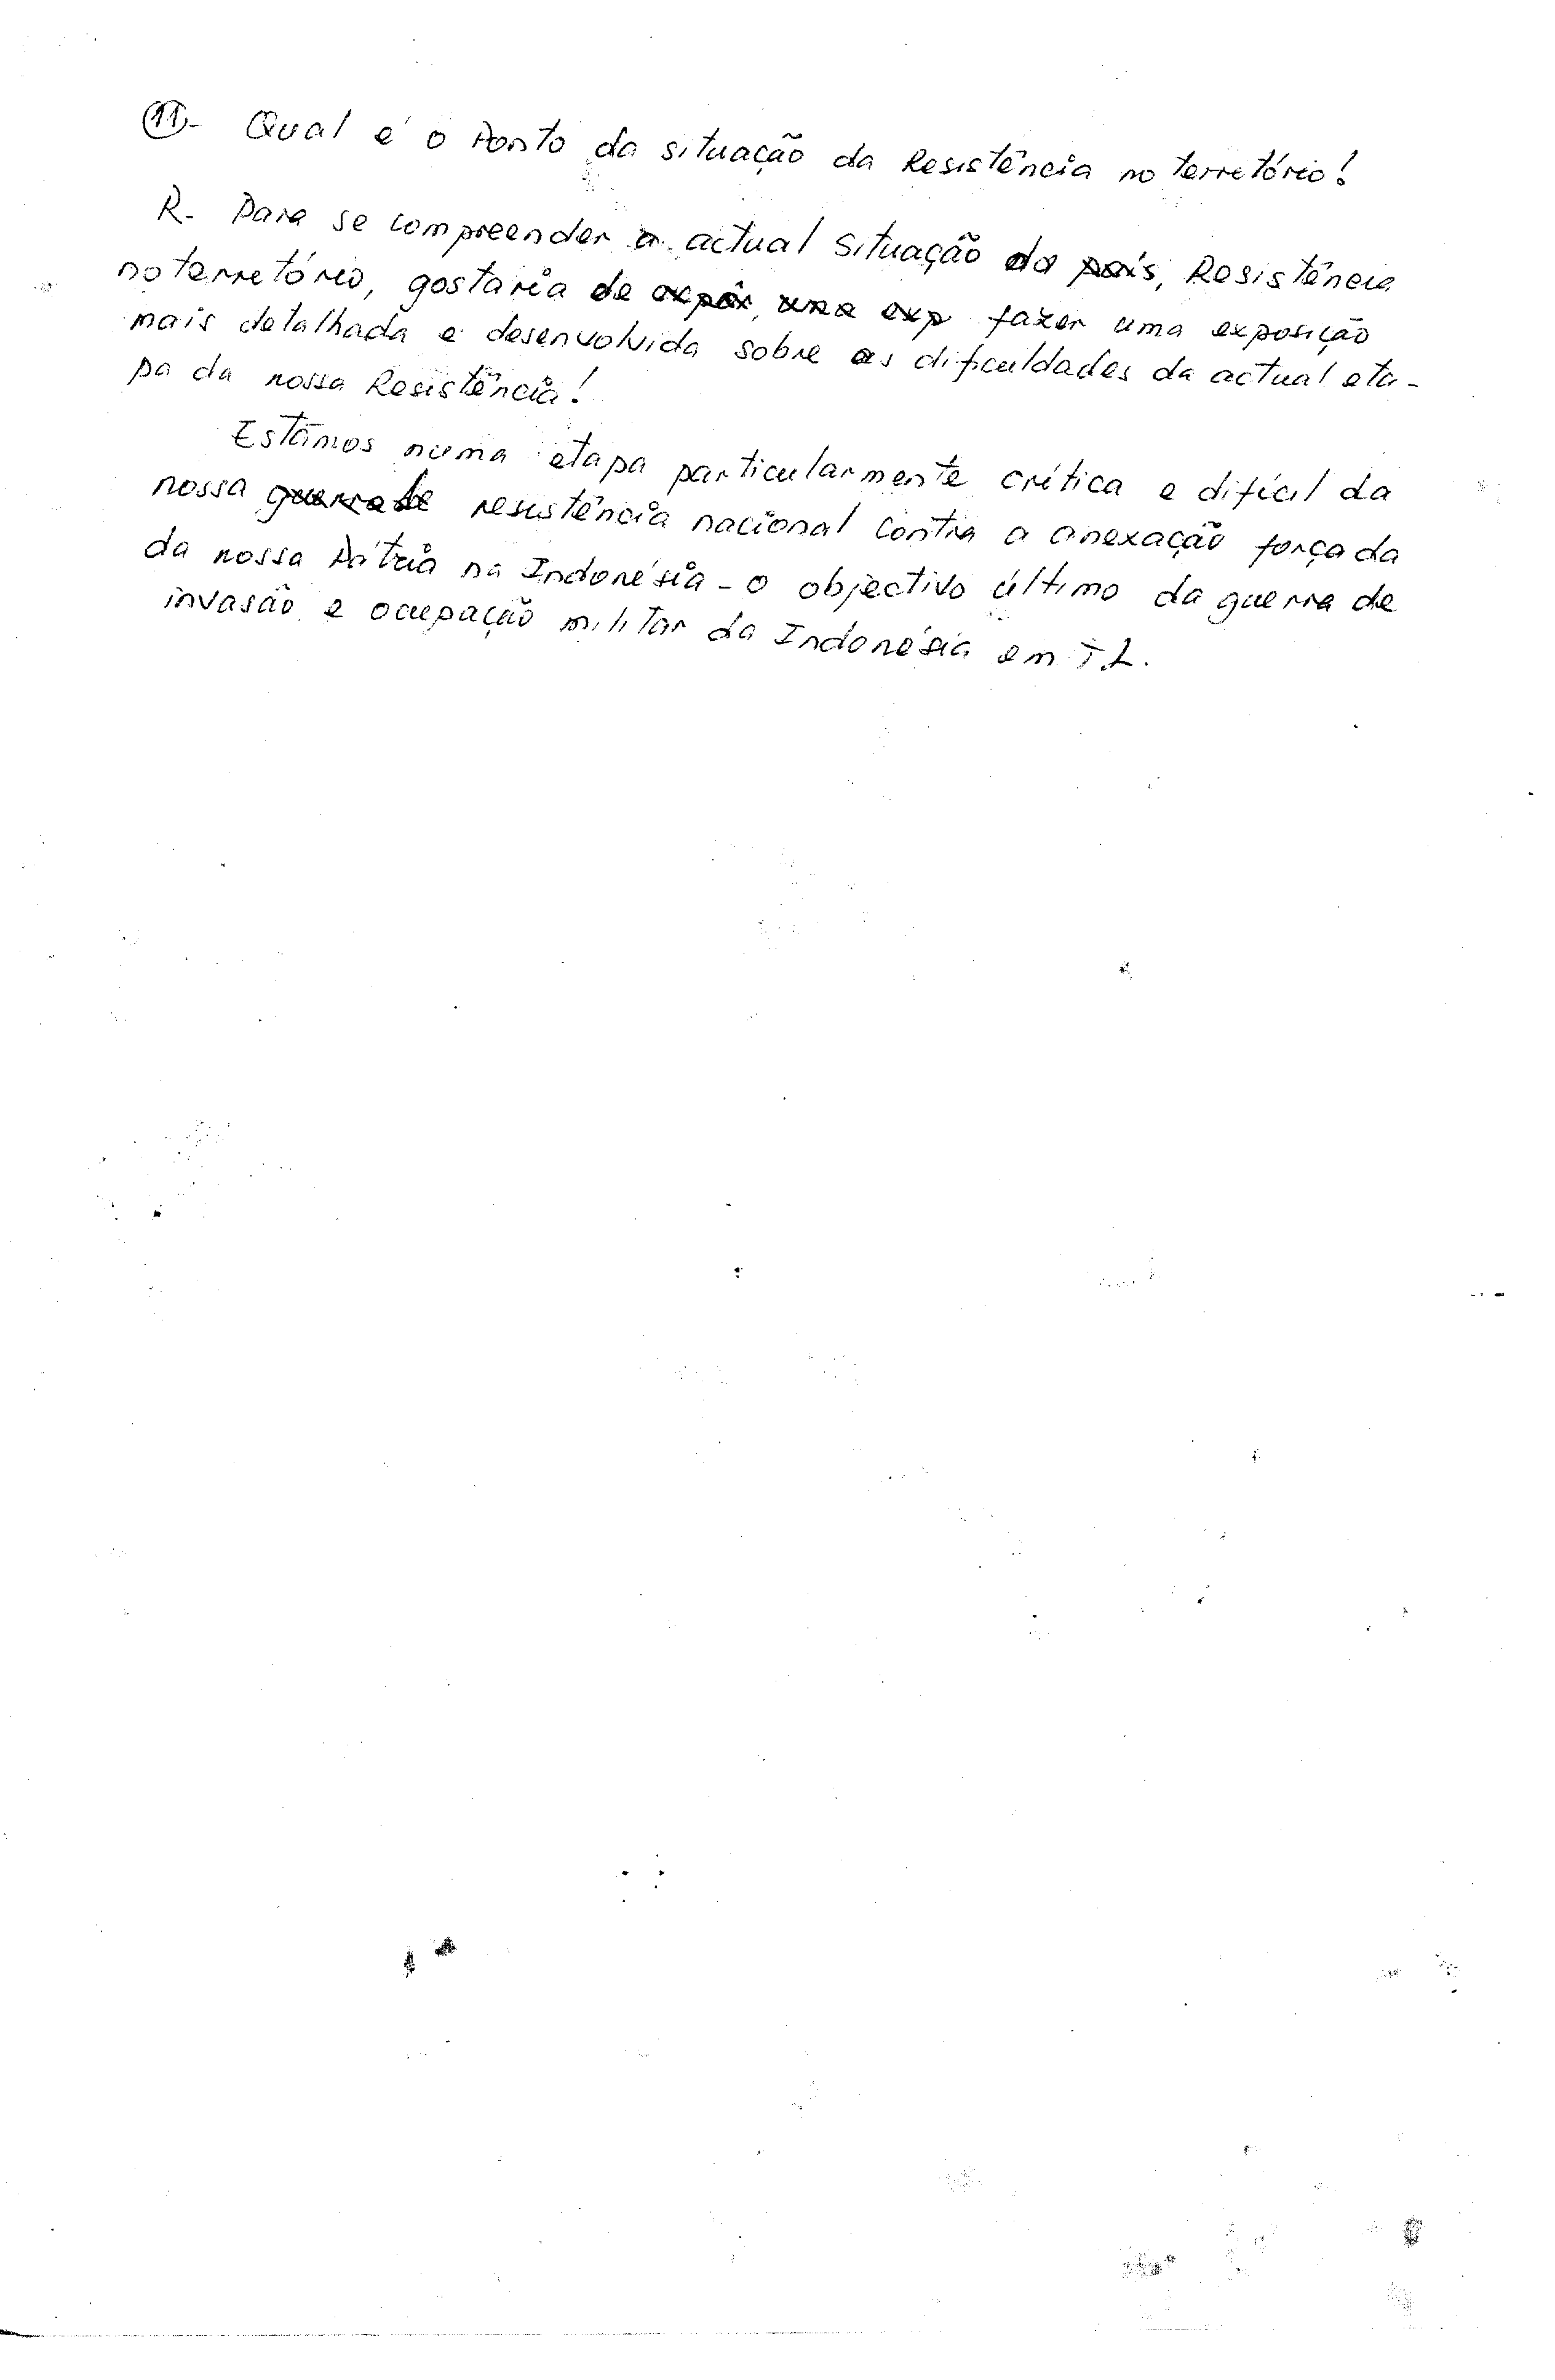 11- Qual é o Ponto da situação da Resistência no território!
R- Para se compreender a actual situação da país, Resistência
no território, gostaria de expôr, uma exp fazer uma exposição
mais detalhada e desenvolvida sobre as dificuldades da actual eta-
pa da nossa Resistência!
Estâmos numa etapa particularmente crítica e difícil da
nossa guerra de resistência nacional contra a anexação forçada
da nossa Pátria na Indonésia - o objectivo último da guerra de
invasão e ocupação militar da Indonésia em T.L.